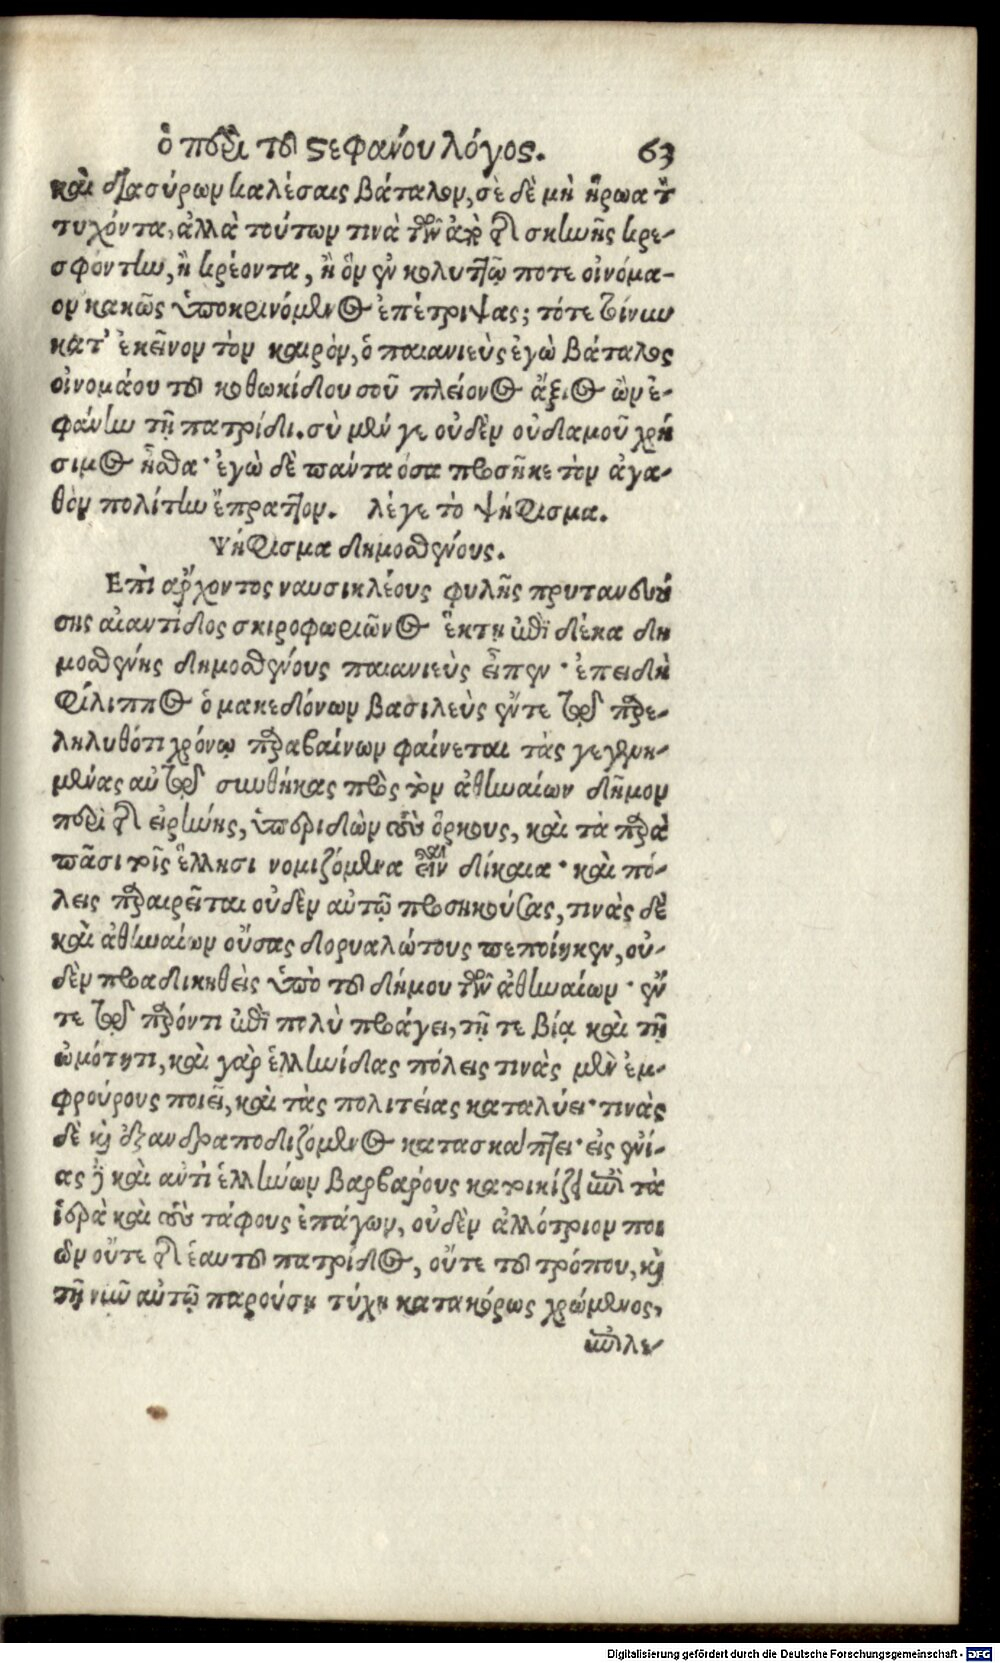 ὁ περὶ τοῦ στεφάνου λόγος. 63
καὶ διασύρων καλέσαις βάταλον, σὲ δὲ μὴ ἥρωα τὸν
τυχόντα, ἀλλὰ τούτων τινὰ τῶν ἀπὸ τῆς σκηνῆς κρε-
σφόντην, ἢ κρέοντα, ἢ ὃν ἐν κολυττῷ ποτε οἰνόμα-
ον κακῶς ὑποκρινόμενος ἐπέτριψας; τότε τοίνυν
κατ' ἐκεῖνον τὸν καιρὸν, ὁ παιανιεὺς ἐγὼ βάταλος
οἰνομάου τοῦ κοθωκίδου σοῦ πλείονος ἄξιος ὢν ἐ-
φάνην τῇ πατρίδι. σὺ μέν γε οὐδὲν οὐδαμοῦ χρή
σιμος ἦσθα· ἐγὼ δὲ πάντα ὅσα προσῆκε τὸν ἀγα-
θὸν πολίτην ἔπραττον. λέγε τὸ ψήφισμα.
Ψήφισμα δημοσθένους.
Επὶ ἄρχοντος ναυσικλέους φυλῆς πρυτανευού
σης αἰαντίδος σκιροφωριῶνος ἕκτῃ ἐπὶ δέκα δη
μοσθένης δημοσθένους παιανιεὺς εἶπεν· ἐπειδὴ
φίλιππος ὁ μακεδόνων βασιλεὺς ἔν τε τῷ παρε-
ληλυθότι χρόνῳ παραβαίνων φαίνεται τὰς γεγενη-
μένας αὐτῷ συνθήκας πρὸς τὸν ἀθηναίων δῆμον
περὶ τῆς εἰρήνης, ὑπεριδὼν τοὺς ὅρκους, καὶ τὰ παρὰ
πᾶσι τοῖς ἕλλησι νομιζόμενα εἶναι δίκαια· καὶ πό-
λεις παραιρεῖται οὐδὲν αὐτῷ προσηκούσας, τινὰς δὲ
καὶ ἀθηναίων οὔσας δορυαλώτους πεποίηκεν, οὐ-
δὲν προαδικηθεὶς ὑπὸ τοῦ δήμου τῶν ἀθηναίων· ἔν
τε τῷ παρόντι ἐπὶ πολὺ προάγει, τῇ τε βίᾳ καὶ τῇ
ὠμότητι, καὶ γὰρ ἑλληνίδας πόλεις τινὰς μὲν ἐμ-
φρούρους ποιεῖ, καὶ τὰς πολιτείας καταλύει· τινὰς
δὲ καὶ ἐξανδραποδιζόμενος κατασκάπτει· εἰς ἐνί-
ας δὲ καὶ ἀντὶ ἑλλήνων βαρβάρους κατοικίζει ἐπὶ τὰ
ἱερὰ καὶ τοὺς τάφους ἐπάγων, οὐδὲν ἀλλότριον ποι
ῶν οὔτε τῆς ἑαυτοῦ πατρίδος, οὔτε τοῦ τρόπου, καὶ
τῇ νῦν αὐτῷ παρούσῃ τύχῃ κατακόρως χρώμενος,
ἐπιλε-
Digitalisierung gefördert durch die Deutsche Forschungsgemeinschaft - DFG